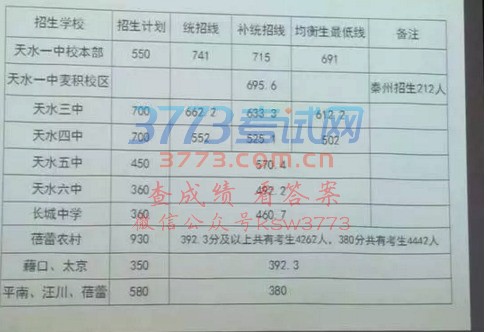 招生学校 招生计划 统招线 补统招线 均衡生最低线 备注
天水一中校本部 550 741 715 691
天水一中麦积校区 695.6 秦州招生212人
天水三中 700 662.2 633.3 612.2
天水四中 700 552 525.1 502
天水五中 450 570.4
天水六中 360
长城中学 360 460.7
蓓蕾农村 930 392.3分及以上共有考生4262人，380分共有考生4442人
藉口、太京 350 392.3
平南、汪川、蓓蕾 580 380
3773考试网
3773.com.cn
查成绩 看答案
微信公众号ksw3773